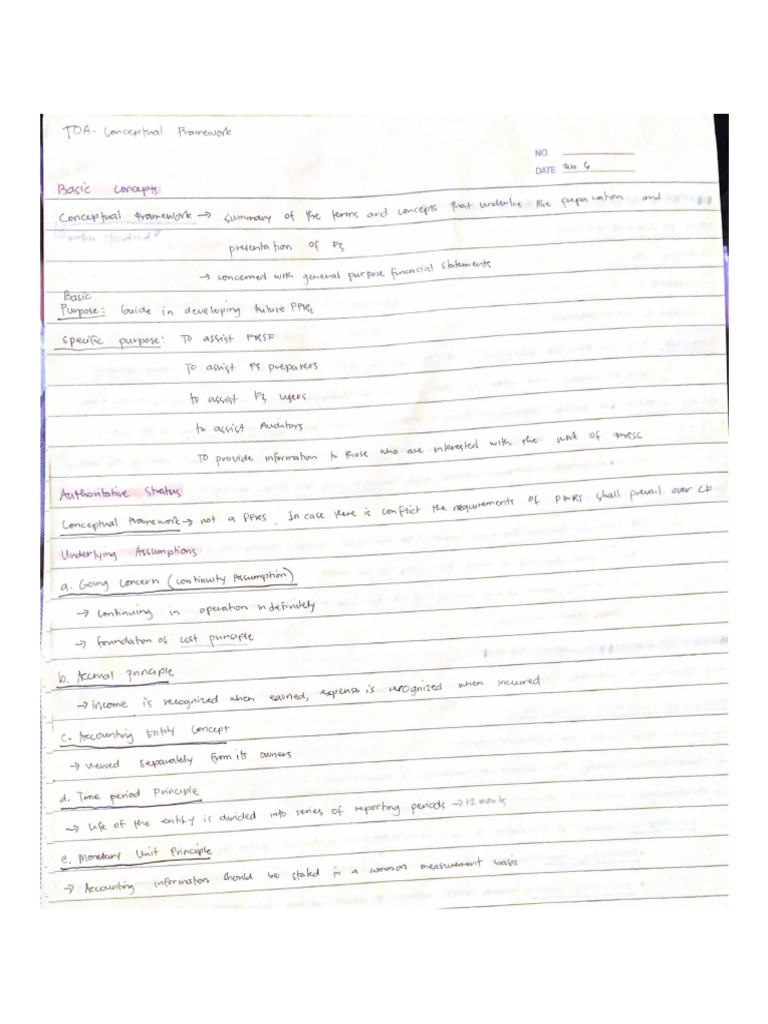 TOA - Conceptual Framework
NO.
DATE Feb 6
Basic Concepts
Conceptual Framework → summary of the terms and concepts that underline the preparation and
presentation of FS
→ concerned with general purpose financial statements
Basic
Purpose: Guide in developing future PFRS
Specific purpose: To assist FRSF
To assist FS preparers
to assist FS users
to assist Auditors
TO provide information to those who are interested with the work of FRSC
Authoritative Status
Conceptual Framework → not a PFRS. In case there is conflict the requirements of PFRS shall prevail over CF
Underlying Assumptions
a. Going Concern (Continuity Assumption)
→ continuing in operation indefinitely
→ foundation of cost principle
b. Accrual principle
→ income is recognized when earned, expense is recognized when incurred
c. Accounting Entity Concept
→ viewed separately from its owners
d. Time period Principle
→ Life of the entity is divided into series of reporting periods → 12 months
e. Monetary Unit Principle
→ Accounting information should be stated in a common measurement basis